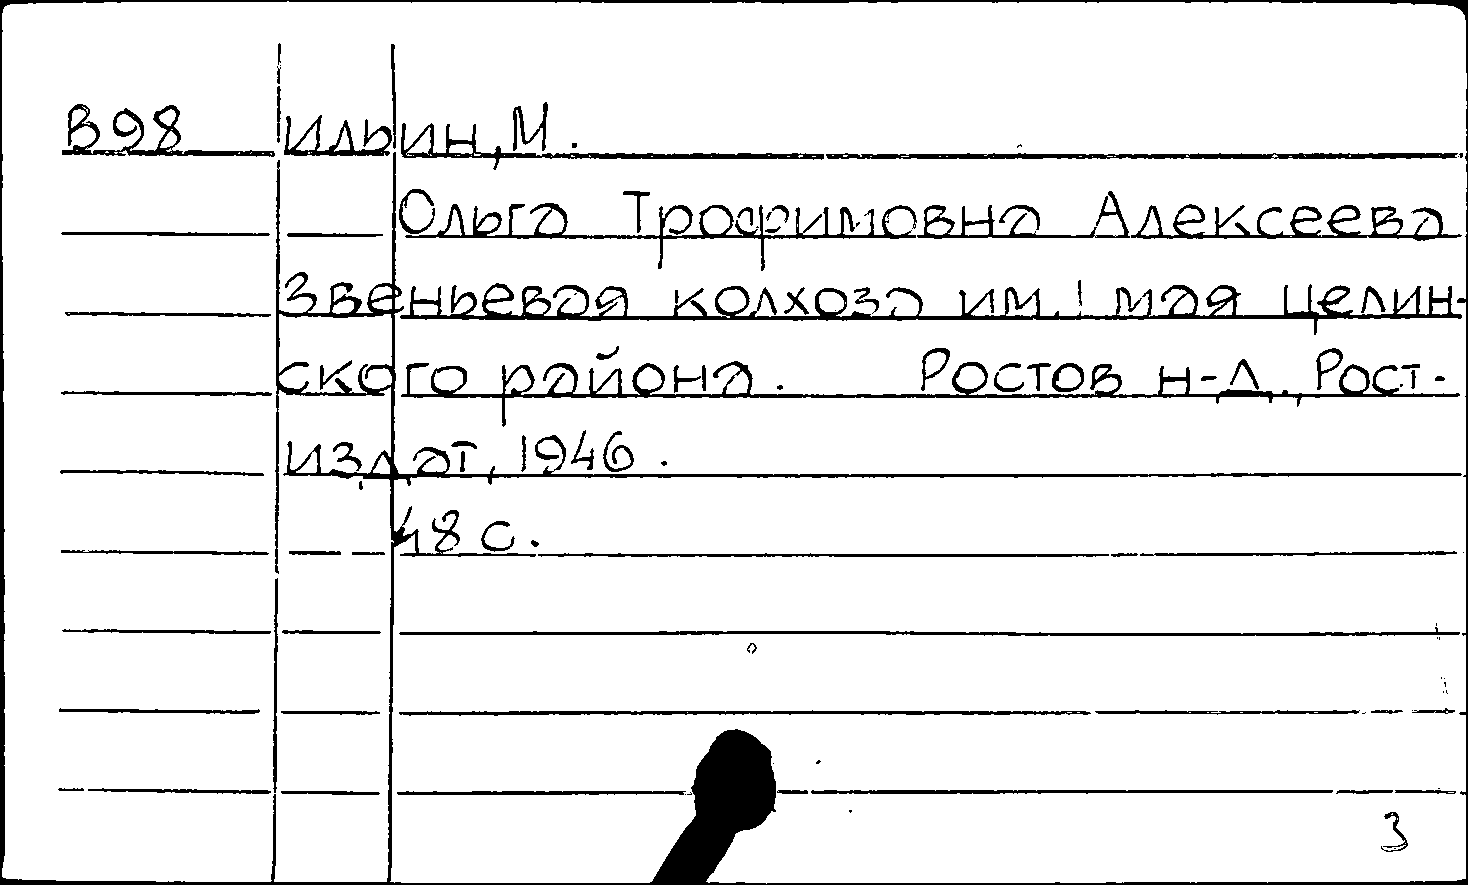 В98 Ильин, М.
Ольга Трофимовна Алексеева
Звеньевая колхоза им. 1 мая Целин-
ского района. Ростов н-Д., Рост-
издат, 1946.
48 с.
3